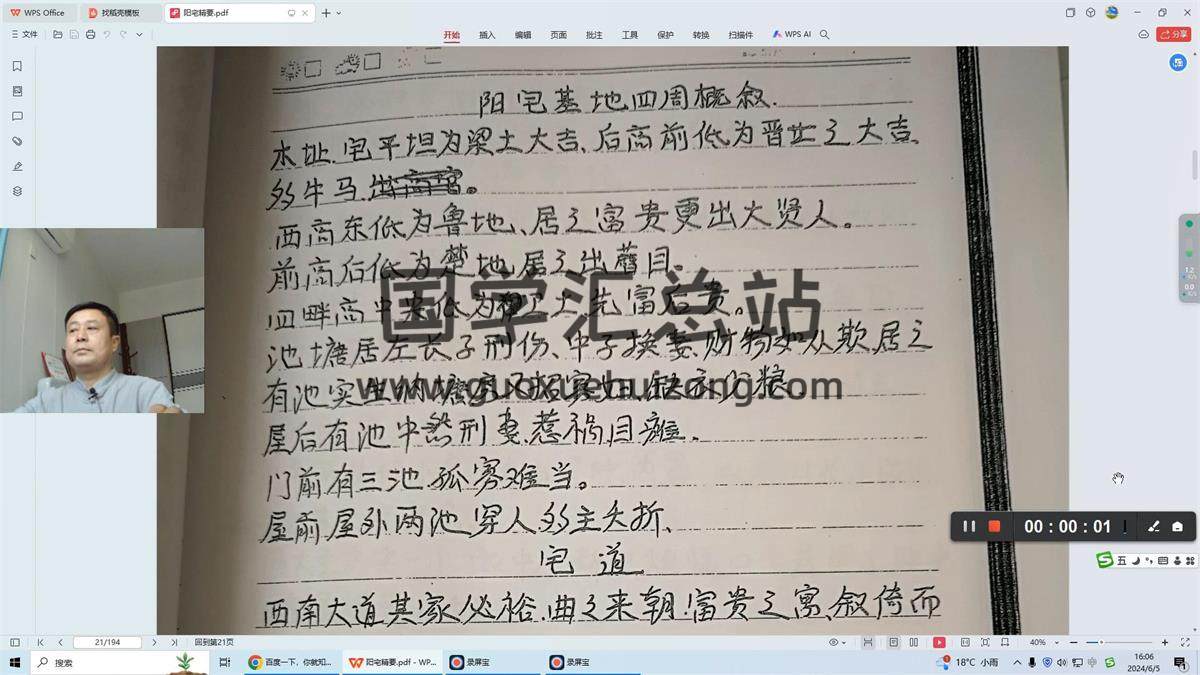 WPS Office
找稻壳模板
阳宅精要.pdf
文件
开始 插入 编辑 页面 批注 工具 保护 转换 扫描件 WPS AI
分享
阳宅基地四周概叙.
本址.宅平坦为梁土大吉、后高前低为晋土之大吉、
多牛马.
西高东低为鲁地、居之富贵更出大贤人。
前高后低为楚地居之出瞽目.
四畔高中央低为 土.先富后贵。
池塘居左长子刑伤、中子换妻.财物如从欺.居之
有池实
屋后有池中煞刑妻.惹祸目瘫.
门前有三池.孤寡难当。
屋前屋外两池穿人多主夭折、
宅 道
西南大道其家必裕.曲之来朝.富贵之寓.叙倚而
国学汇总站
www.guoxuehuizong.com
00:00:01
五
1.2
0.0
21/194
回到第21页
40%
搜索
百度一下，你就知...
阳宅精要.pdf - WP...
录屏宝
录屏宝
18°C 小雨
中
16:06
2024/6/5